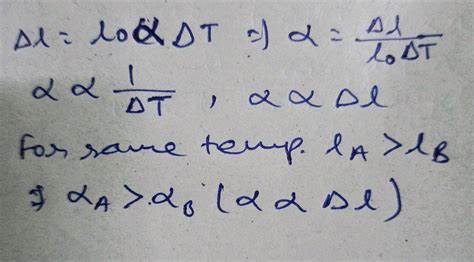 Δl = l₀αΔT ⇒ α = Δl / l₀ΔT
α ∝ 1/ΔT , α ∝ Δl
For same temp. lA > lB
⇒ αA > αB (α ∝ Δl)